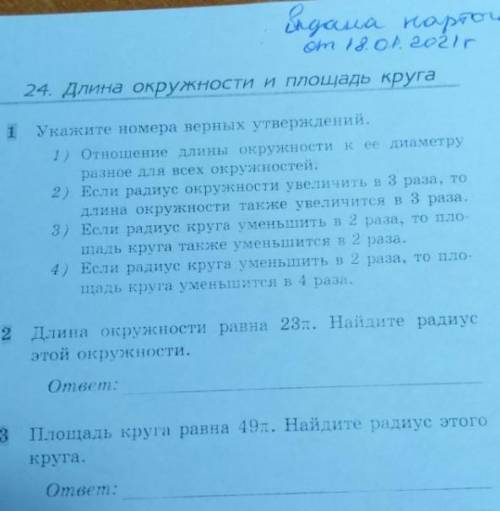 от 18.01.2021г
24. Длина окружности и площадь круга
1 Укажите номера верных утверждений.
1) Отношение длины окружности к ее диаметру
разное для всех окружностей.
2) Если радиус окружности увеличить в 3 раза, то
длина окружности также увеличится в 3 раза.
3) Если радиус круга уменьшить в 2 раза, то пло-
щадь круга также уменьшится в 2 раза.
4) Если радиус круга уменьшить в 2 раза, то пло-
щадь круга уменьшится в 4 раза.
2 Длина окружности равна 23π. Найдите радиус
этой окружности.
Ответ:
3 Площадь круга равна 49π. Найдите радиус этого
круга.
Ответ: